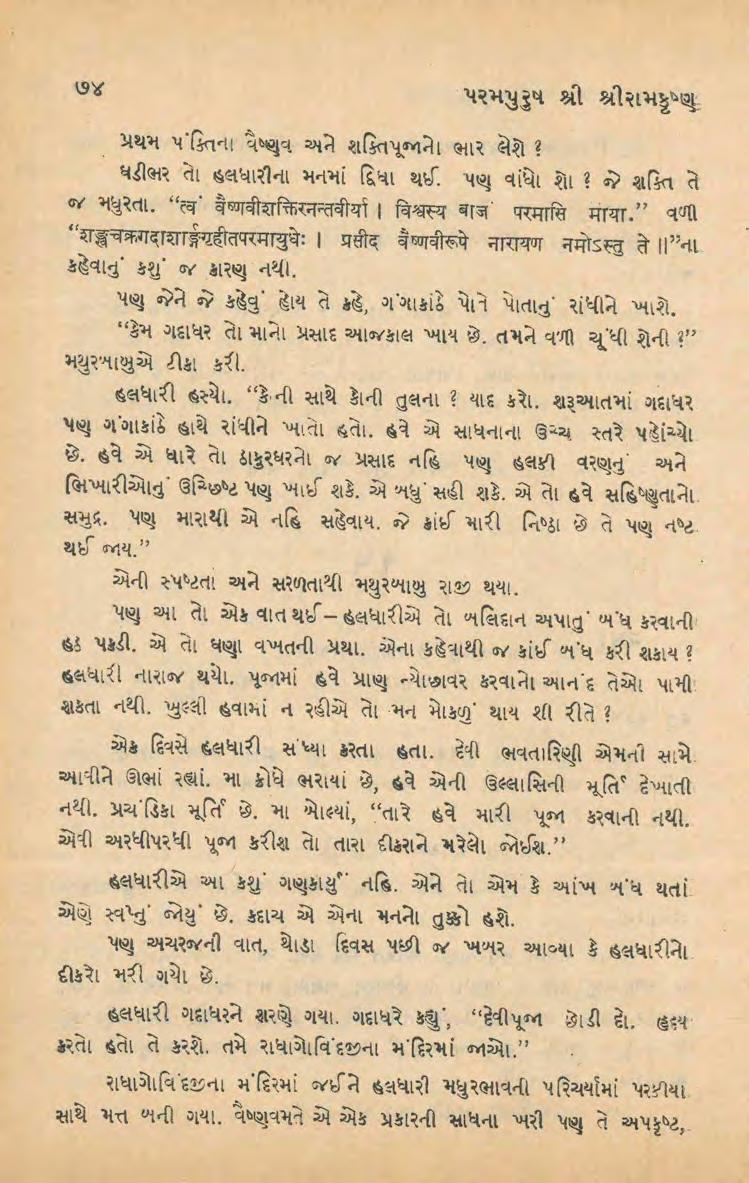 ૭૪
પરમપુરુષ શ્રી શ્રીરામકૃષ્ણ
પ્રથમ પંક્તિના વૈષ્ણવ અને શક્તિપૂજાનો ભાર લેશે ?
ઘડીભર તો હલધારીના મનમાં દ્વિધા થઈ. પણ વાંધો શો ? જે શક્તિ તે
જ મધુરતા. “त्वं वैष्णवीशक्तिरनन्तवीर्या । विश्वस्य बाजं परमासि माया.” વળી
“शङ्खचक्रगदाशार्ङ्गगृहीतपरमायुधेः । प्रसीद वैष्णवीरूपे नारायण नमोऽस्तु ते ॥”ના
કહેવાનું કશું જ કારણ નથી.
પણ જેને જે કહેવું હોય તે કહે, ગંગાકાંઠે પોતે પોતાનું રાંધીને ખાશે.
“કેમ ગદાધર તો માનો પ્રસાદ આજકાલ ખાય છે. તમને વળી ચૂંધી શેની ?”
મથુરબાબુએ ટીકા કરી.
હલધારી હસ્યો. “કેની સાથે કોની તુલના ? યાદ કરો. શરૂઆતમાં ગદાધર
પણ ગંગાકાંઠે હાથે રાંધીને ખાતો હતો. હવે એ સાધનાના ઉચ્ચ સ્તરે પહોંચ્યો
છે. હવે એ ધારે તો ઠાકુરઘરનો જ પ્રસાદ નહિ પણ હલકી વરણનું અને
ભિખારીઓનું ઉચ્છિષ્ટ પણ ખાઈ શકે. એ બધું સહી શકે. એ તો હવે સહિષ્ણુતાનો
સમુદ્ર. પણ મારાથી એ નહિ સહેવાય. જે કાંઈ મારી નિષ્ઠા છે તે પણ નષ્ટ
થઈ જાય.”
એની સ્પષ્ટતા અને સરળતાથી મથુરબાબુ રાજી થયા.
પણ આ તો એક વાત થઈ – હલધારીએ તો બલિદાન અપાતું બંધ કરવાની
હઠ પકડી. એ તો ઘણા વખતની પ્રથા. એના કહેવાથી જ કાંઈ બંધ કરી શકાય ?
હલધારી નારાજ થયો. પૂજામાં હવે પ્રાણ ન્યોછાવર કરવાનો આનંદ તેઓ પામી
શકતા નથી. ખુલ્લી હવામાં ન રહીએ તો મન મોકળું થાય શી રીતે ?
એક દિવસે હલધારી સંધ્યા કરતા હતા. દેવી ભવતારિણી એમની સામે
આવીને ઊભાં રહ્યાં. મા ક્રોધે ભરાયાં છે, હવે એની ઉલ્લાસિની મૂર્તિ દેખાતી
નથી. પ્રચંડિકા મૂર્તિ છે. મા બોલ્યાં, “તારે હવે મારી પૂજા કરવાની નથી.
એવી અરધીપરધી પૂજા કરીશ તો તારા દીકરાને મરેલો જોઈશ.”
હલધારીએ આ કશું ગણકાર્યું નહિ. એને તો એમ કે આંખ બંધ થતાં
એણે સ્વપ્નું જોયું છે. કદાચ એ એના મનનો તુક્કો હશે.
પણ અચરજની વાત, થોડા દિવસ પછી જ ખબર આવ્યા કે હલધારીનો
દીકરો મરી ગયો છે.
હલધારી ગદાધરને શરણે ગયા. ગદાધરે કહ્યું, “દેવીપૂજા છોડી દો. હૃદય
કરતો હતો તે કરશે. તમે રાધાગોવિંદજીના મંદિરમાં જાઓ.”
રાધાગોવિંદજીના મંદિરમાં જઈને હલધારી મધુરભાવની પરિચર્યામાં પરકીયા
સાથે મત્ત બની ગયા. વૈષ્ણવમતે એ એક પ્રકારની સાધના ખરી પણ તે અપકૃષ્ટ,